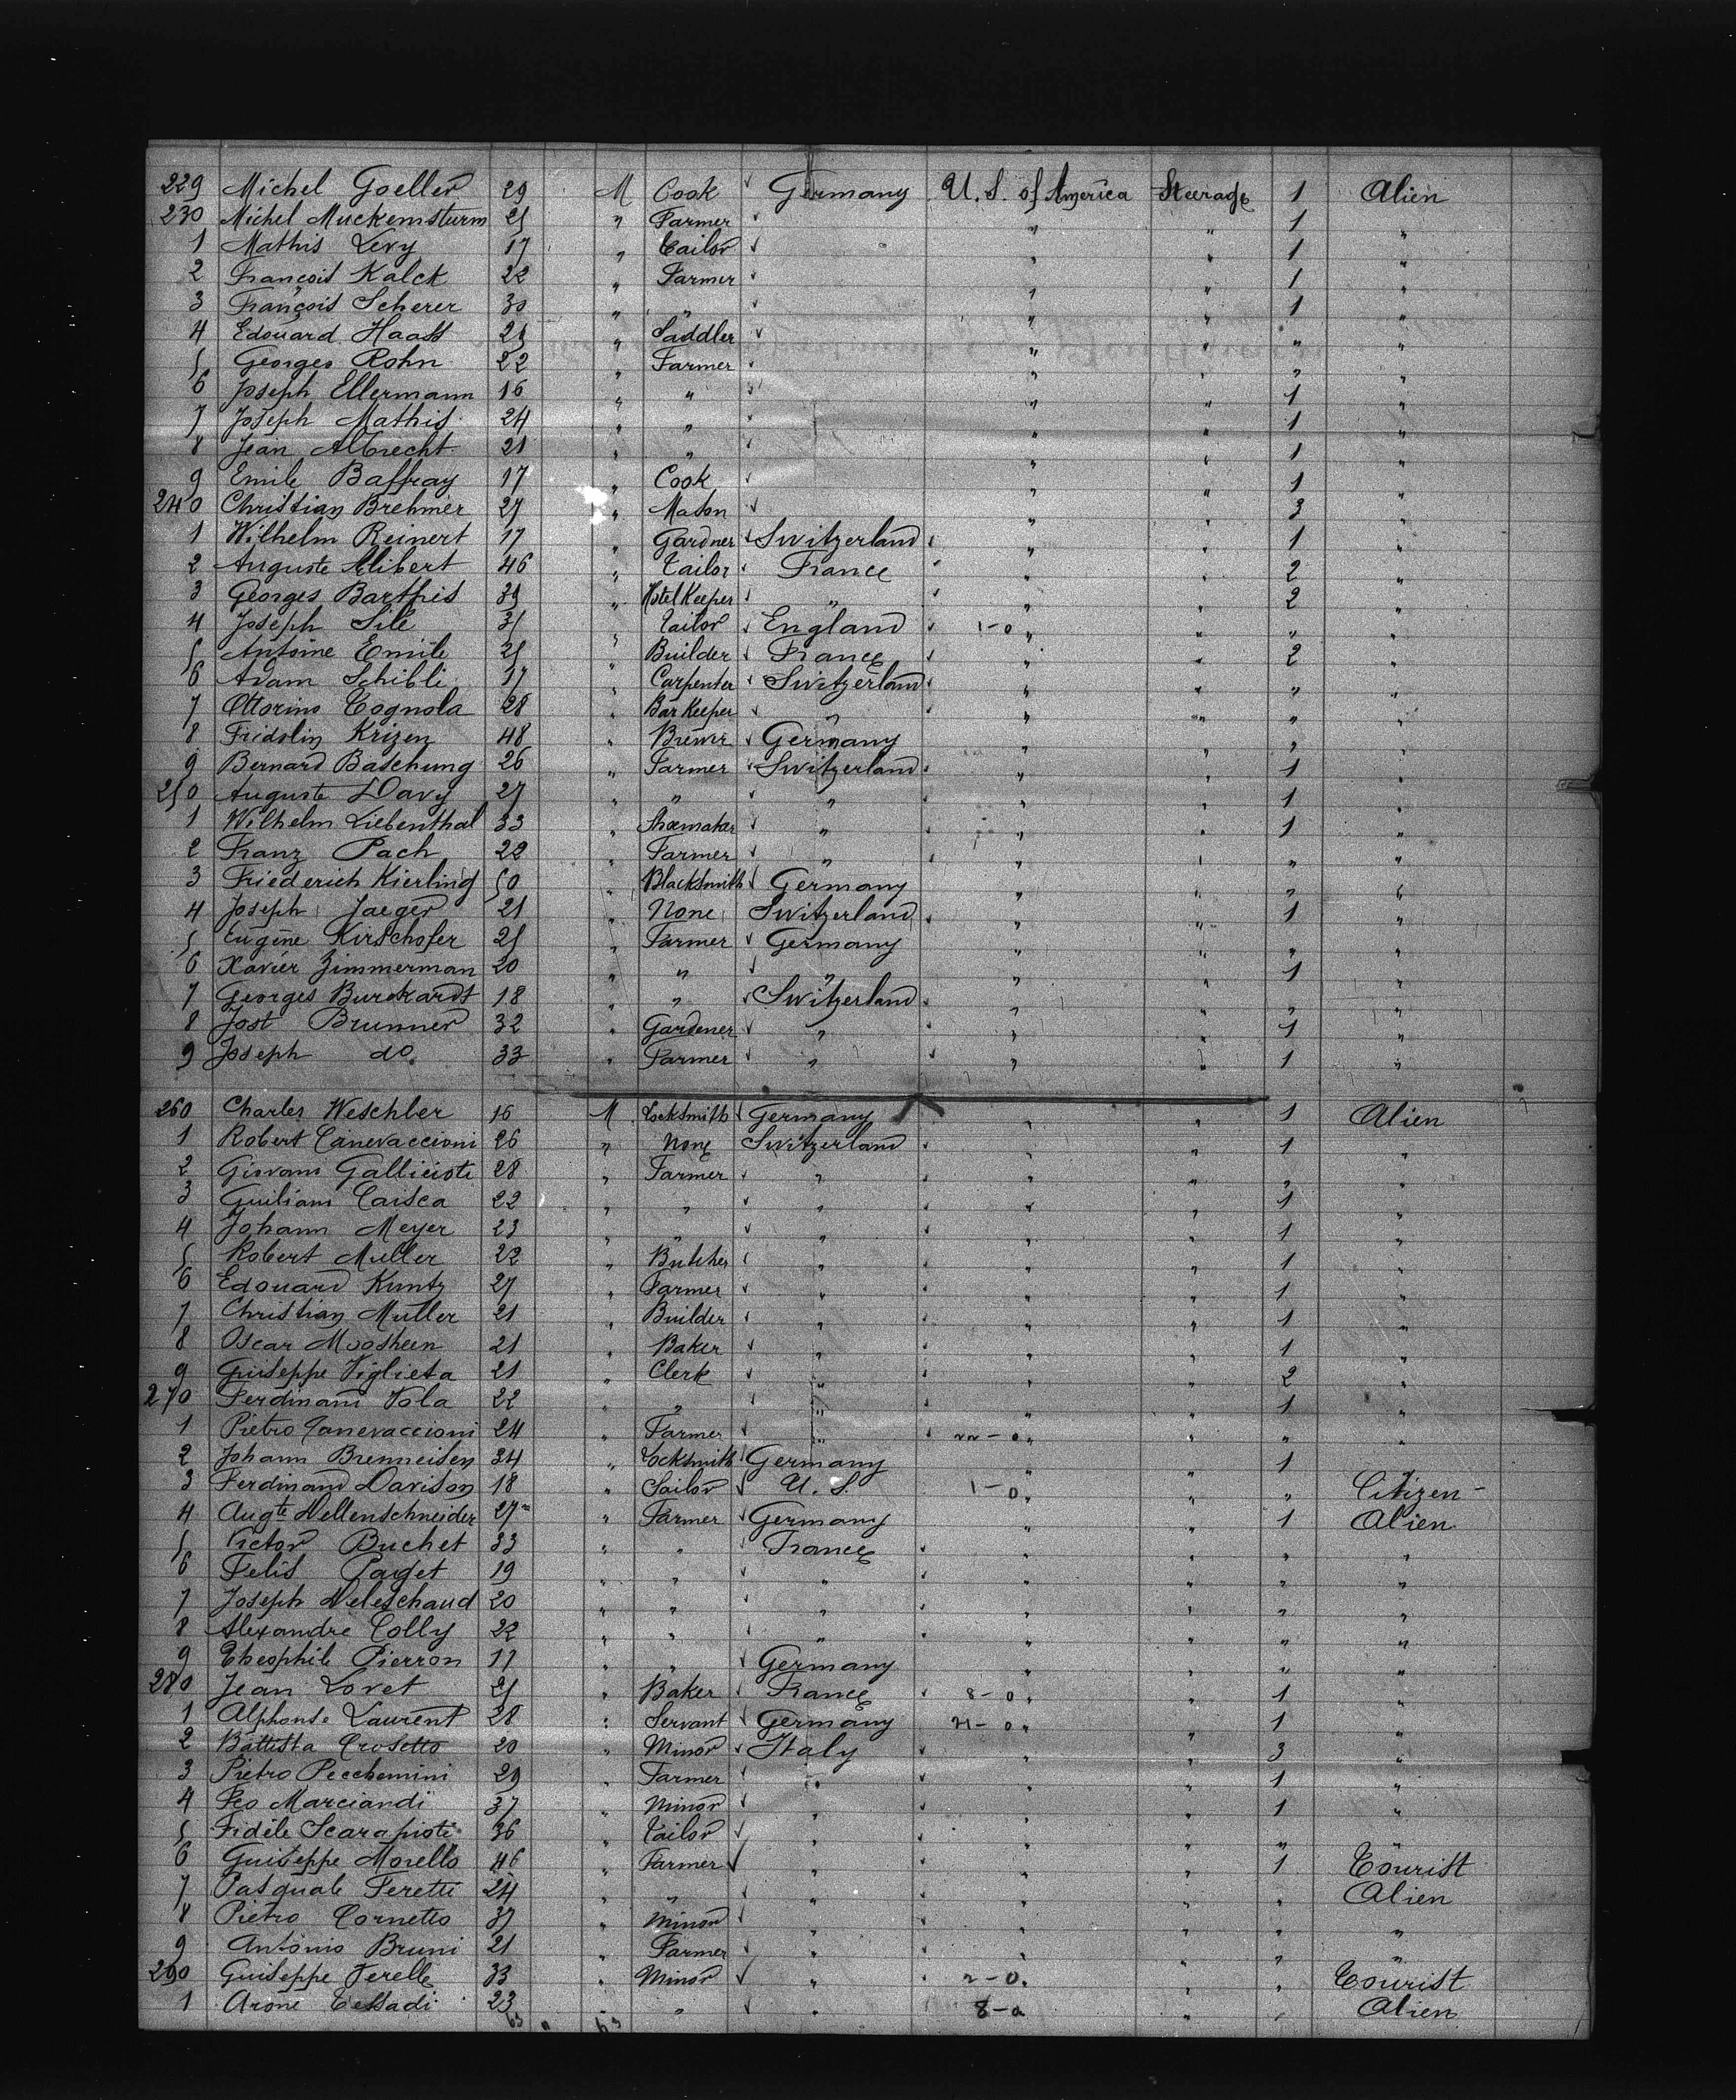 229 Michel Goeller 29 M Cook Germany U. S. of America Steerage 1 Alien
230 Michel Muckemsturm 25 " Farmer " " 1 "
1 Mathis Levy 17 " Tailor " " 1 "
2 François Kalck 22 " Farmer " " 1 "
3 François Scherer 30 " " " " 1 "
4 Edouard Haass " Saddler " " " "
5 Georges Rohn 22 " Farmer " " " "
6 Joseph Ellermann 16 " " " " 1 "
7 Joseph Mathis 24 " " " " 1 "
8 Jean Albrecht 21 " " " " 1 "
9 Emile Baffray 17 " Cook " " 1 "
240 Christian Brehmer 27 " Mason " " 3 "
1 Wilhelm Reinert 17 " Gardner Switzerland " " 1 "
2 Auguste Alibert 46 " Tailor France " " 2 "
3 Georges Barthis 39 " Hotel Keeper " " " 2 "
4 Joseph Sile 31 " Tailor England 1-0 " " " "
5 Antoine Emile 25 " Builder France " " 2 "
6 Adam Schibli 17 " Carpenter Switzerland " " " "
7 Ottorino Cognola 28 " Bar Keeper " " " " "
8 Fridolin Krizen 48 " Brewer Germany " " " "
9 Bernard Baschung 26 " Farmer Switzerland " " 1 "
250 Auguste Davy 27 " " " " " 1 "
1 Wilhelm Liebenthal 33 " Shoemaker " " " 1 "
2 Franz Pach 22 " Farmer " " " " "
3 Friederich Kierling 50 " Blacksmith Germany " " " "
4 Joseph Jaeger 21 " None Switzerland " " 1 "
5 Eugène Kirschofer 25 " Farmer Germany " " " "
6 Xavier Zimmerman 20 " " " " " 1 "
7 Georges Burckardt 18 " " Switzerland " " " "
8 Jost Brunner 32 " Gardener " " " 1 "
9 Joseph do 33 " Farmer " " " 1 "
260 Charles Weschler 16 M Locksmith Germany " " 1 Alien
1 Robert Canevaccioni 26 " None Switzerland " " 1 "
2 Giovani Gallicioti 28 " Farmer " " " " "
3 Guiliam Caisca 22 " " " " " 1 "
4 Johann Meyer 23 " " " " " 1 "
5 Robert Muller 22 " Butcher " " " 1 "
6 Edouard Kuntz 27 " Farmer " " " 1 "
7 Christian Muller 21 " Builder " " " 1 "
8 Oscar Moosheen 21 " Baker " " " 1 "
9 Guiseppe Viglieta 21 " Clerk " " " 2 "
270 Ferdinand Vola 22 " " " " " 1 "
1 Pietro Canevaccioni 24 " Farmer " " " " "
2 Johann Brenneisen 34 " Locksmith Germany " " 1 "
3 Ferdinand Davison 18 " Sailor U. S. 1-0 " " " Citizen -
4 Augte Dellenschneider 27 " Farmer Germany " " 1 Alien
5 Victor Buchet 33 " " France " " " "
6 Felis Paget 19 " " " " " " "
7 Joseph Deleschaud 20 " " " " " " "
8 Alexandre Colly 22 " " " " " " "
9 Theophile Pierron 17 " " Germany " " " "
280 Jean Loret 21 " Baker France 8-0 " " 1 "
1 Alphonse Laurent 28 " Servant Germany " " 1 "
2 Battista Crosetto 20 " Minor Italy " " 3 "
3 Pietro Pecchemini 29 " Farmer " " " 1 "
4 Feo Marciandi 37 " Minor " " " 1 "
5 Fidèle Scarapioti 36 " Tailor " " " " "
6 Guiseppe Morello 46 " Farmer " " " 1 Tourist
7 Pasquale Feretti 24 " " " " " " Alien
8 Pietro Cornetto 37 " Minor " " " " "
9 Antonio Bruni 21 " Farmer " " " " "
290 Guiseppe Ferelle 33 " Minor " 2-0 " " " Tourist
1 Arone Tessadi 23 " " " 8-a " " Alien
63 " 63